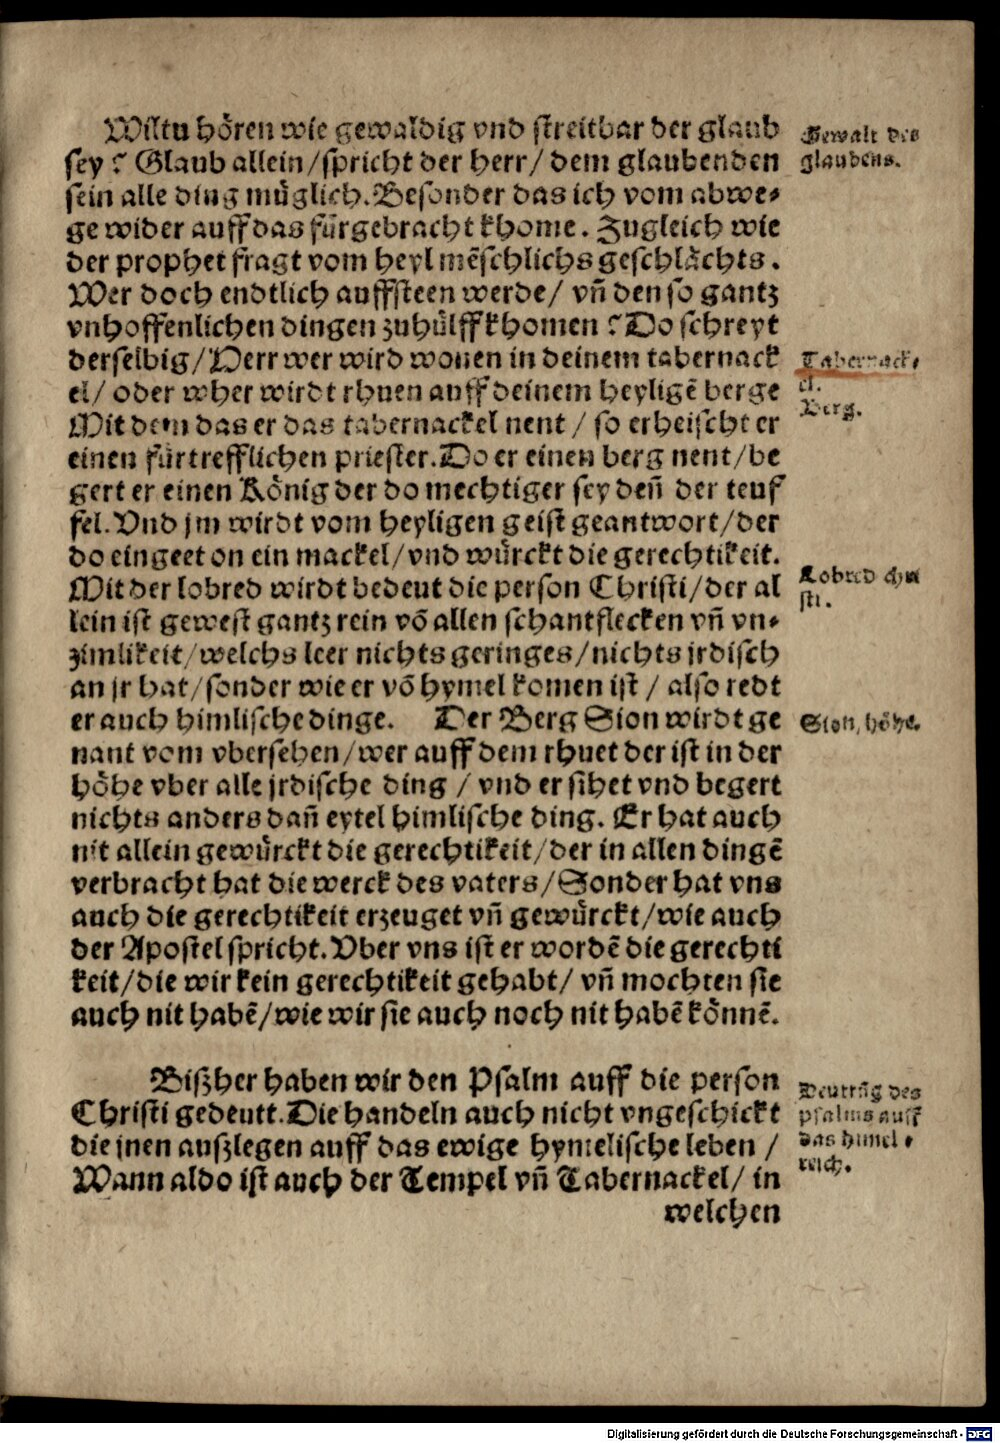 Wiltu hören wie gewaldig vnd streitbar der glaub
sey? Glaub allein/spricht der herr/ dem glaubenden
sein alle ding müglich. Besonder das ich vom abwe⸗
ge wider auff das fürgebracht khome. Zugleich wie
der prophet fragt vom heyl mēschlichs geschlächts.
Wer doch endtlich auffsteen werde/ vn̄ den so gantz
vnhoffenlichen dingen zuhülff khomen? Do schreyt
derselbig/Herr wer wird wonen in deinem tabernack
el/ oder wher wirdt rhuen auff deinem heyligē berge
Mit dem das er das tabernackel nent/ so erheischt er
einen fürtrefflichen priester. Do er einen berg nent/be
gert er einen König der do mechtiger sey den̄ der teuf
fel. Vnd jm wirdt vom heyligen geist geantwort/der
do eingeet on ein mackel/vnd würckt die gerechtikeit.
Mit der lobred wirdt bedeut die person Christi/der al
lein ist gewest gantz rein vō allen schantflecken vn̄ vn⸗
zimlikeit/welchs leer nichts geringes/nichts jrdisch
an jr hat/sonder wie er vō hymel komen ist/ also redt
er auch himlische dinge. Der Berg Sion wirdt ge
nant vom vbersehen/wer auff dem rhuet der ist in der
höhe vber alle jrdische ding/ vnd er sihet vnd begert
nichts anders dan̄ eytel himlische ding. Er hat auch
nit allein gewürckt die gerechtikeit/der in allen dingē
verbracht hat die werck des vaters/Sonder hat vns
auch die gerechtikeit erzeuget vn̄ gewürckt/wie auch
der Apostel spricht. Vber vns ist er wordē die gerechti
keit/die wir kein gerechtikeit gehabt/ vn̄ mochten sie
auch nit habē/wie wir sie auch noch nit habē könnē.
Bißher haben wir den Psalm auff die person
Christi gedeutt. Die handeln auch nicht vngeschickt
die jnen außlegen auff das ewige hymelische leben/
Wann aldo ist auch der Tempel vn̄ Tabernackel/ in
welchen
Gewalt des
glaubens.
Tabernack⸗
el.
Berg.
Lobred chri
sti.
Sion, höhe.
Deutūg des
psalms auff
das himel⸗
reich.
Digitalisierung gefördert durch die Deutsche Forschungsgemeinschaft - DFG